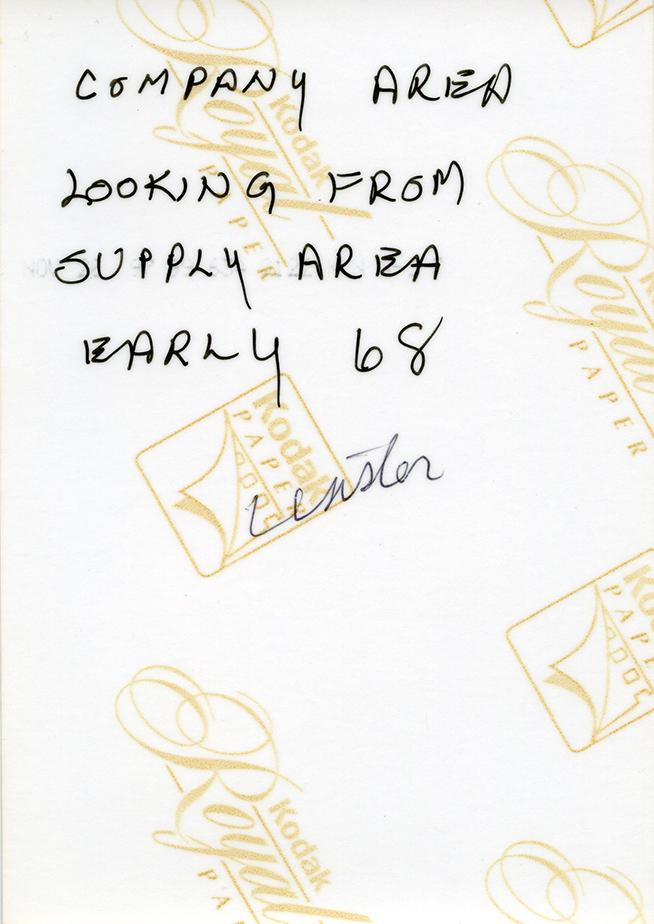 COMPANY AREA
LOOKING FROM
SUPPLY AREA
EARLY 68
Kodak
Royal
PAPER
Royal
PAPER
Kodak
PAPER
Kodak
PAPER
Kodak
Royal